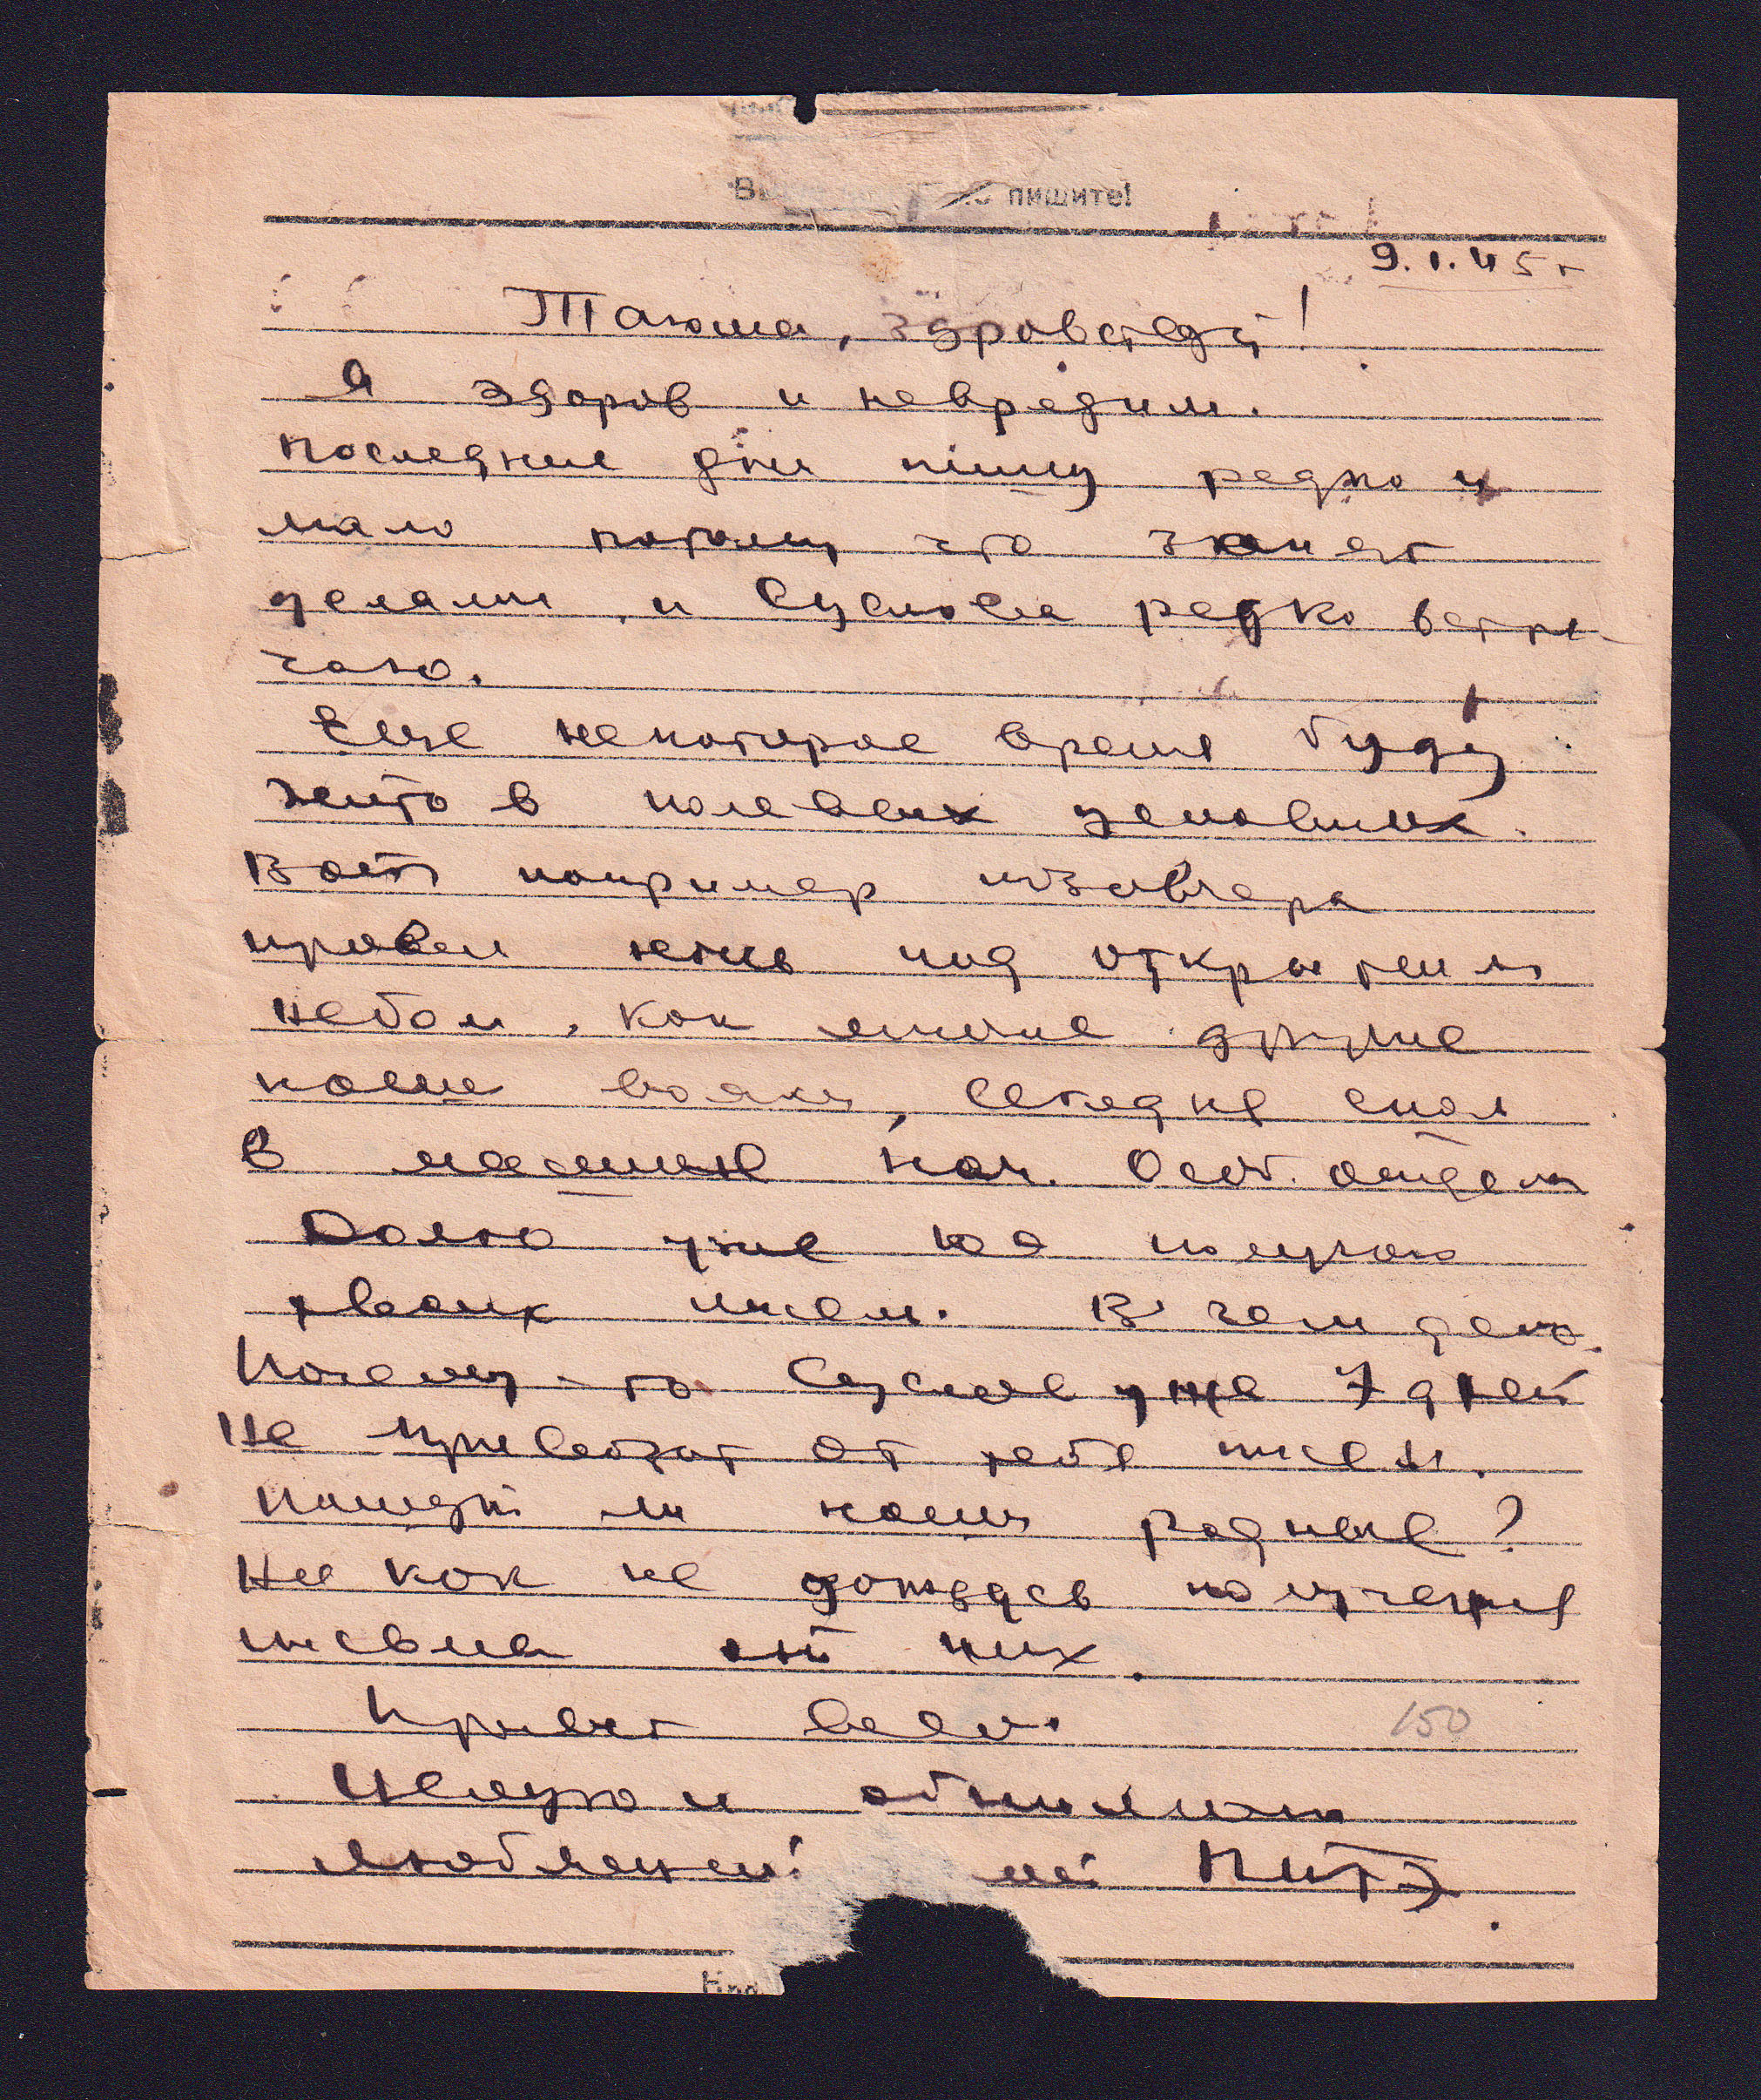 пишите!
9.1.45г
Таюша, здравствуй!
Я здоров и невредим.
Последние дни пишу редко и
мало потому что занят
делами, и Суслова редко встре-
чаю.
Еще некоторое время буду
жить в полевых условиях.
Вот например позавчера
провел ночь под открытым
небом, как многие другие
наши вояки, сегодня спал
в машине нач. Особ. отдела
Долго уже не получаю
твоих писем. В чем дело.
Почему-то Суслов уже 7 дней
не привозит от тебя писем.
Пишут ли наши родные?
Ни как не дождусь получения
письма от них.
Привет Всем.
150
Целую и обнимаю
любящий Митя